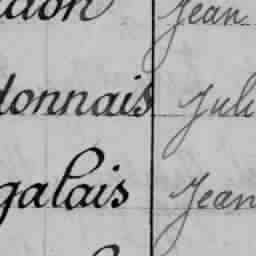 Jean
donnais Juli
galais Jean